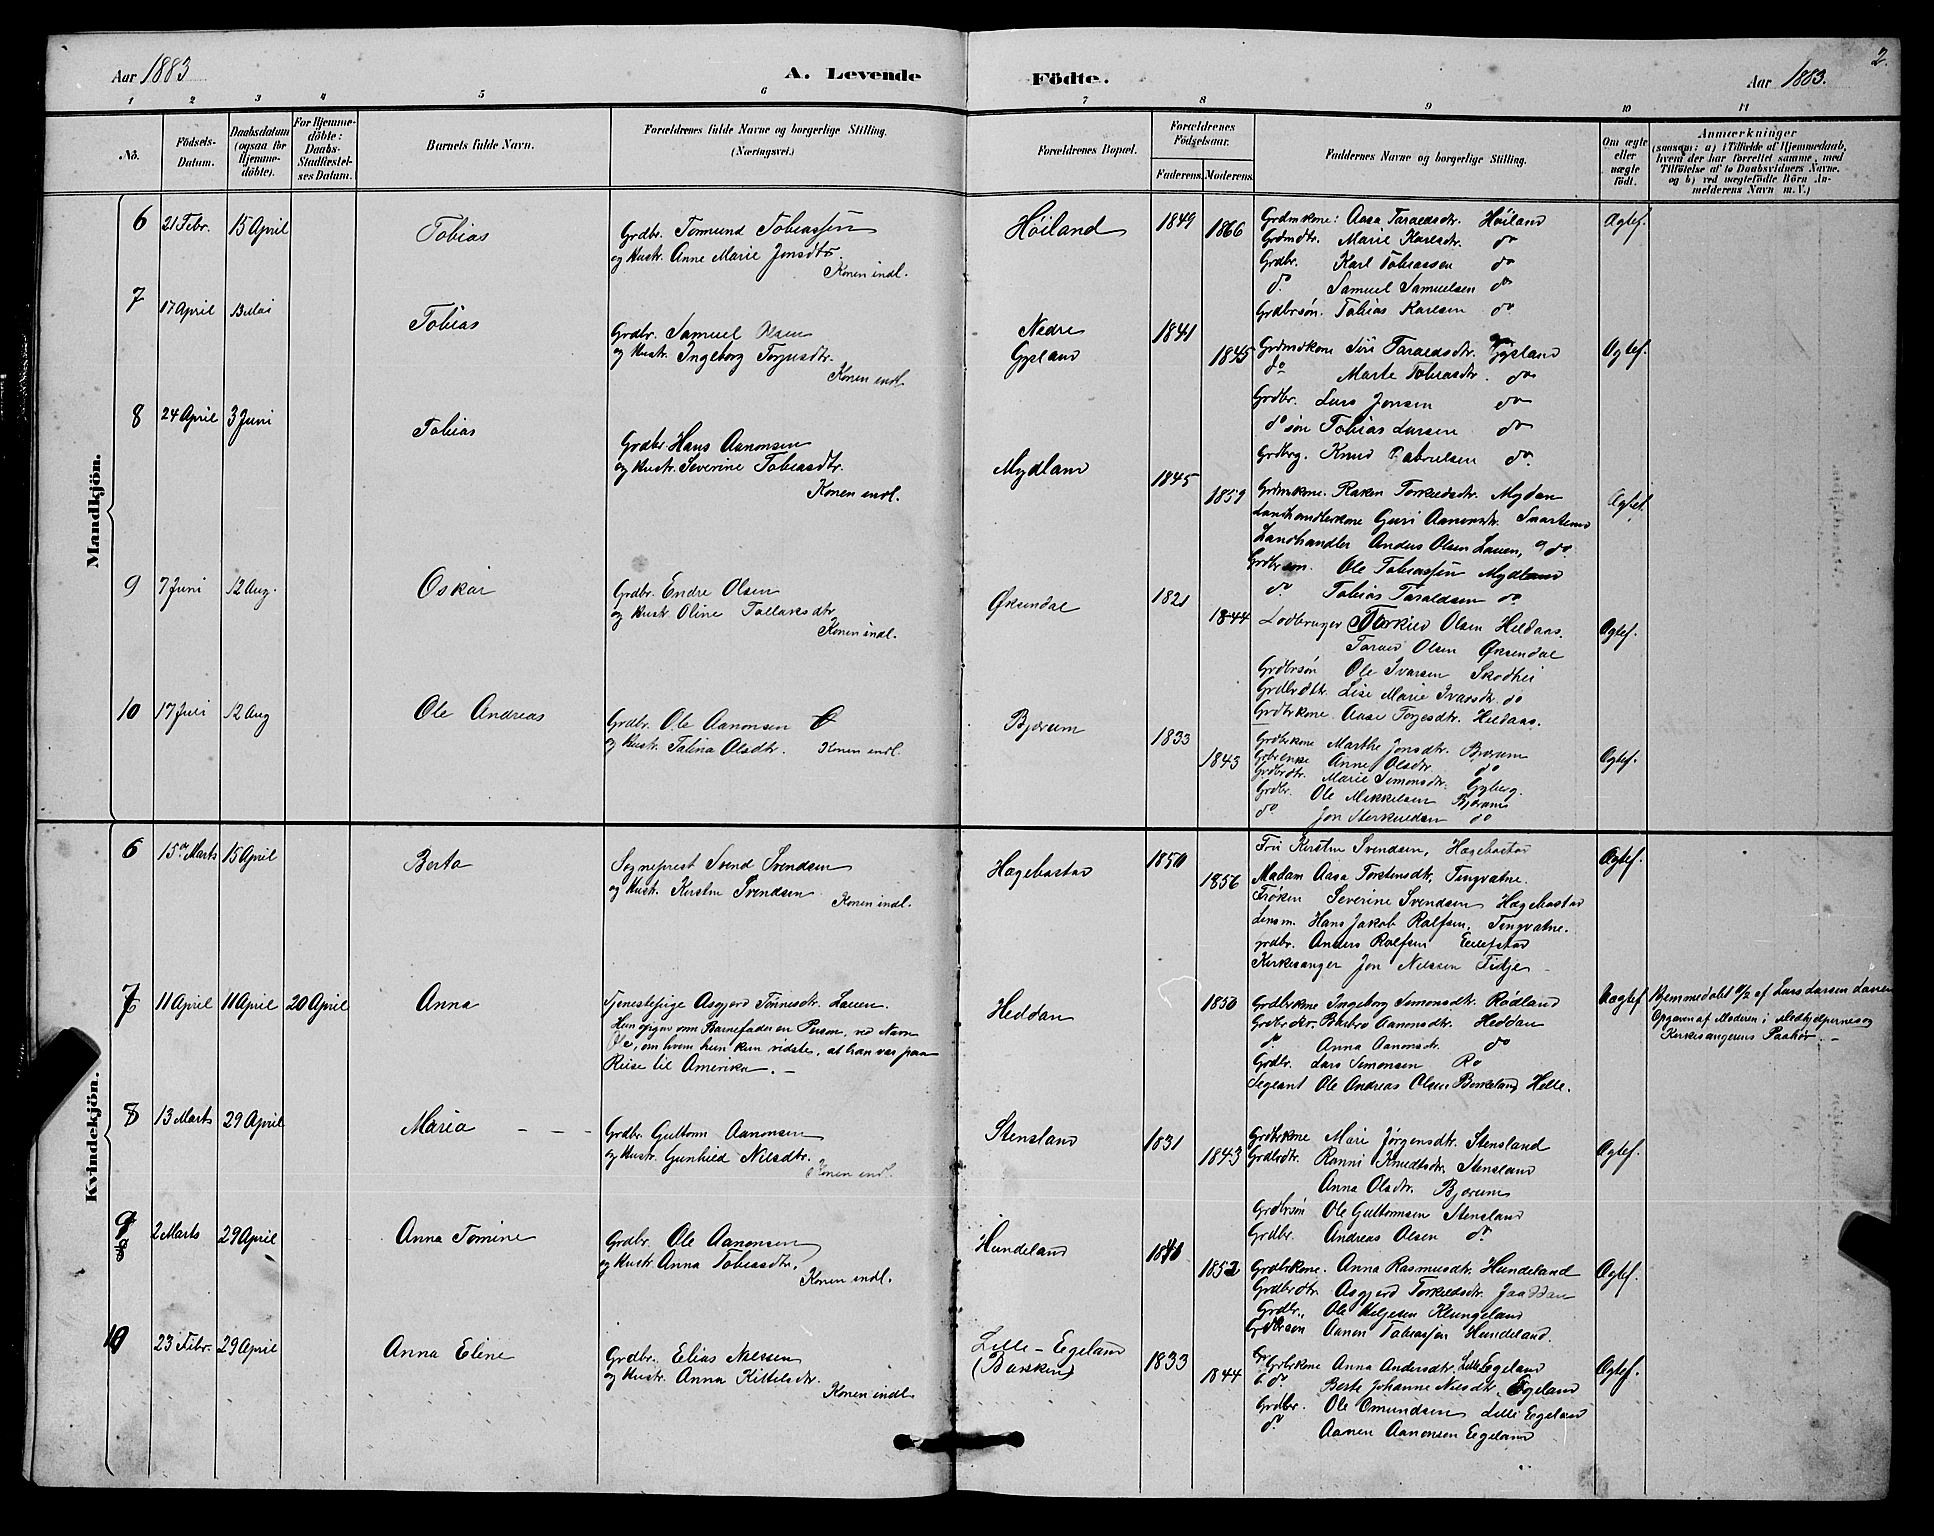 Aar 1883
A. Levende
Födte.
Aar 1883.
2.
1 2 3 4 5 6 7 8 9 10 11
No.
Födsels-
Datum.
Daabsdatum
(ogsaa for
Hjemme-
döbte).
For Hjemme-
döbte:
Daabs-
Stadfæstel-
ses Datum.
Barnets fulde Navn.
Forældrenes fulde Navne og borgerlige Stilling.
(Næringsvei.)
Forældrenes Bopæl.
Forældrenes
Födselsaar.
Faderens. Moderens.
Faddernes Navne og borgerlige Stilling.
Om ægte
eller
uægte
födt.
Anmærkninger
(saasom: a) i Tilfælde af Hjemmedaab,
hvem der har forrettet samme, med
Tilföielse af to Daabsvidners Navne.
og b) ved uægtefödte Börn An-
melderens Navn m. V.)
Mandkjön.
6 21 Febr. 15 April Tobias
Grdbr. Tønnund Tobiassen
og Hustr. Anne Marie Jonsdtr.
Konen indl.
Høiland 1849 1866
Grdmkone: Aasa Taraldsdtr. Høiland
Grdmdtr. Marie Karlsdtr. do
Grdbr. Karl Tobiassen do
do. Samuel Samuelsen do
Grdbrsøn. Tobias Karlsen do
Ægtef.
7 17 April Tobias
Grdbr. Samuel Olsen
og Hustr. Ingeborg Torjusdtr.
Konen indl.
Nedre
Gysland 1841 1845
Grdmdkone Siri Taraldsdtr. Gysland
do Marte Tobiasdtr. do
Grdbr. Lars Jonsen do
do søn Tobias Larsen do
Grdbrg. Knud Gabrielsen do.
Ægtef.
8 24 April 3 Juni Tobias
Grdbr. Hans Aanonsen
og Hustr. Severine Tobiasdtr.
Konen indl.
Mydland 1845 1859
Grdmkone. Rakel Torkildsdtr. Mydan
Landhandlerkone Guri Aanonsdtr. Snartemo
Landhandler Anders Olsen Lauen, do
Grdbrsøn. Ole Tobiassen Mydland
do. Tobias Taraldsen do.
Ægtef.
9 7 Juni 12 Aug. Oskar
Grdbr. Endre Olsen
og Hustr. Oline Tollaksdtr.
Konen indl.
Øksendal 1821 1844
Lodbruger Torkild Olsen Heldaas.
Tarald Olsen Øksendal
Grdbrsøn Ole Ivarsen Skodhei
Grdbrdtr. Lise Marie Ivarsdtr. do
Grdbrkone. Aase Torjesdtr. Heldaas.
Ægtef.
10 17 Juli 12 Aug Ole Andreas
Grdbr. Ole Aanonsen
og Hustr. Talina Olsdtr. Konen indl.
Bjerum 1833 1843
Grdbrkone Marthe Jonsdtr. Bjerum
Grbrenke Anne Olsdtr do
Grdbrdtr. Marie Simonsdtr. Gyberg.
Grdbr. Ole Mikkelsen Bjerum
do Jon Sterkildsen do
Ægtef.
Kvindekjön.
6 15de Marts 15 April Berta
Sogneprest Svend Svendsen
og Hustr. Kirstin Svendsen
Konen indl.
Hægebostad 1850 1856
Fru Kirstin Svendsen, Hægebostad
Madam Aasa Torstensdtr, Tingvatne.
Frøken Severine Svendsen Hægebostad
Lensm. Hans Jakob Rolfsen, Tingvatne.
grdbr. Anders Rolfsen Eilefstad
Kirkesanger Jon Nilssen Tidje
Ægtef.
7 11 April 11 April 20 April Anna
Tjenestepige Asgjerd Tønnesdtr. Lauen.
Hun opgiver om Barnefader en Person, ved Navn
Ole, om hvem hun kun vidste, at han var paa
Reise til Amerika. –
Heddan 1850
Grdbrkone Ingeborg Simonsdtr. Rødland
Grdbrdtr. Barbro Aanonsdtr. Heddan
do. Anna Aanonsdtr. do
Grdbr. Lars Simonsen Ro
Segeant Ole Andreas Olsen Birkeland Helle.
Uægtef
Hjemmedøbt 11/2 af Lars Larsen Lauen
Opgaven af Moderen i Medhjelpernes og
Kirkesangerens Paahør. –
8 13 Marts 29 April Maria
Grdbr. Guttorm Aanonsen
og Hustr. Gunhild Nilsdtr.
Konen indl.
Stensland 1831 1843
Grdbrkone Mari Jørgensdtr. Stensland
Grdbrdtr. Ranni Knudtsdtr. Stensland
Anna Olsdtr. Bjerum
Grdbrsøn Ole Guttormsen Stensland
Grdbr. Andreas Olsen do.
Ægtef.
9 2 Marts 29 April Anna Tomine
Grdbr. Ole Aanonsen
og Hustr. Anna Tobiasdtr.
Konen indl.
Hundeland 1840 1852
Grdbrkone. Anna Rasmusdtr. Hundeland
Grdbrdtr. Asgjerd Torkildsdtr. Jaaddan
Grdbr. Ole Helgesen Klungeland
Grdbrsøn Aanon Tobiassen Hundeland.
Ægtef.
10 23 Febr. 29 April Anna Eline
Grdbr. Elias Nilssen
og Hustr. Anna Kittelsdtr.
Konen indl.
Lille-Egeland
(Barsken) 1833 1844
Grbrkone Anna Andersdtr. Lille Egeland
do Berte Johanne Nilsdtr. Egeland
Grdbr. Ole Omundsen Lille Egeland
do Aanen Aanonsen Egeland
Ægtef.